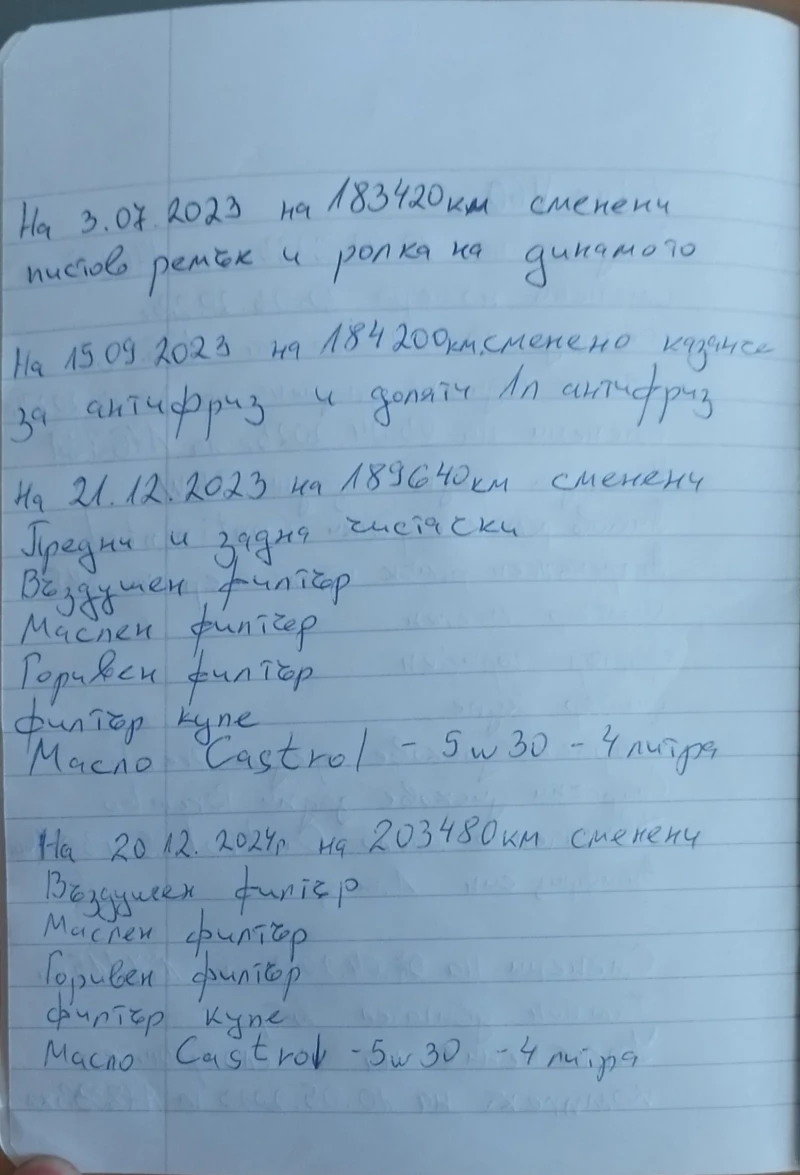 На 3.07.2023 на 183420км сменени
пистов ремък и ролка на динамото
На 15.09.2023 на 184200км. сменено казанче
за антифриз и доляти 1л антифриз
На 21.12.2023 на 189640км сменени
Предни и задна чистачки
Въздушен филтър
Маслен филтър
Горивен филтър
филтър купе
Масло Castrol - 5w30 - 4 литра
На 20.12.2024г на 203480км сменени
Въздушен филтър
Маслен филтър
Горивен филтър
филтър купе
Масло Castrol - 5w30 - 4 литра